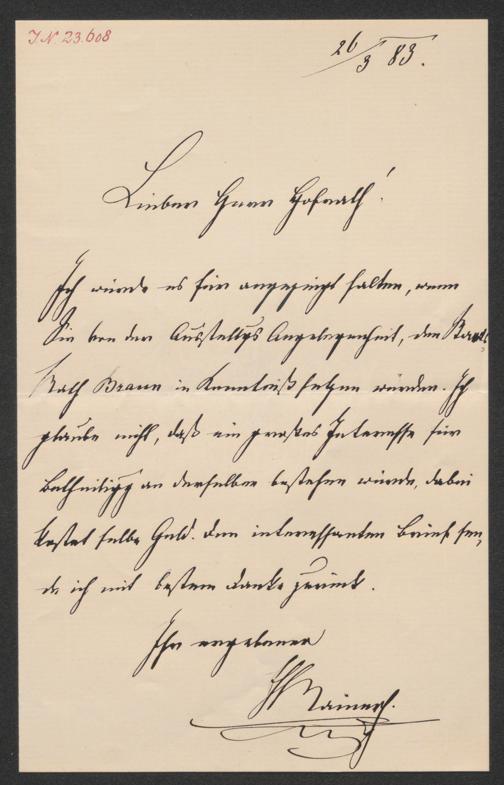 I.N. 23.608
26/3 83.
Lieber Herr Hofrath!
Ich würde es für angezeigt halten, wenn
Sie von der Ausstellgs Angelegenheit, den Staats-
Rath Braun in Kenntniß setzen würden. Ich
glaube nicht, daß ein großes Interesse für
Betheiligg an derselben bestehen würde, dabei
kostet selbe Geld. Den interessanten Brief sen-
de ich mit bestem Danke zurück.
Ihr ergebener
Rainer